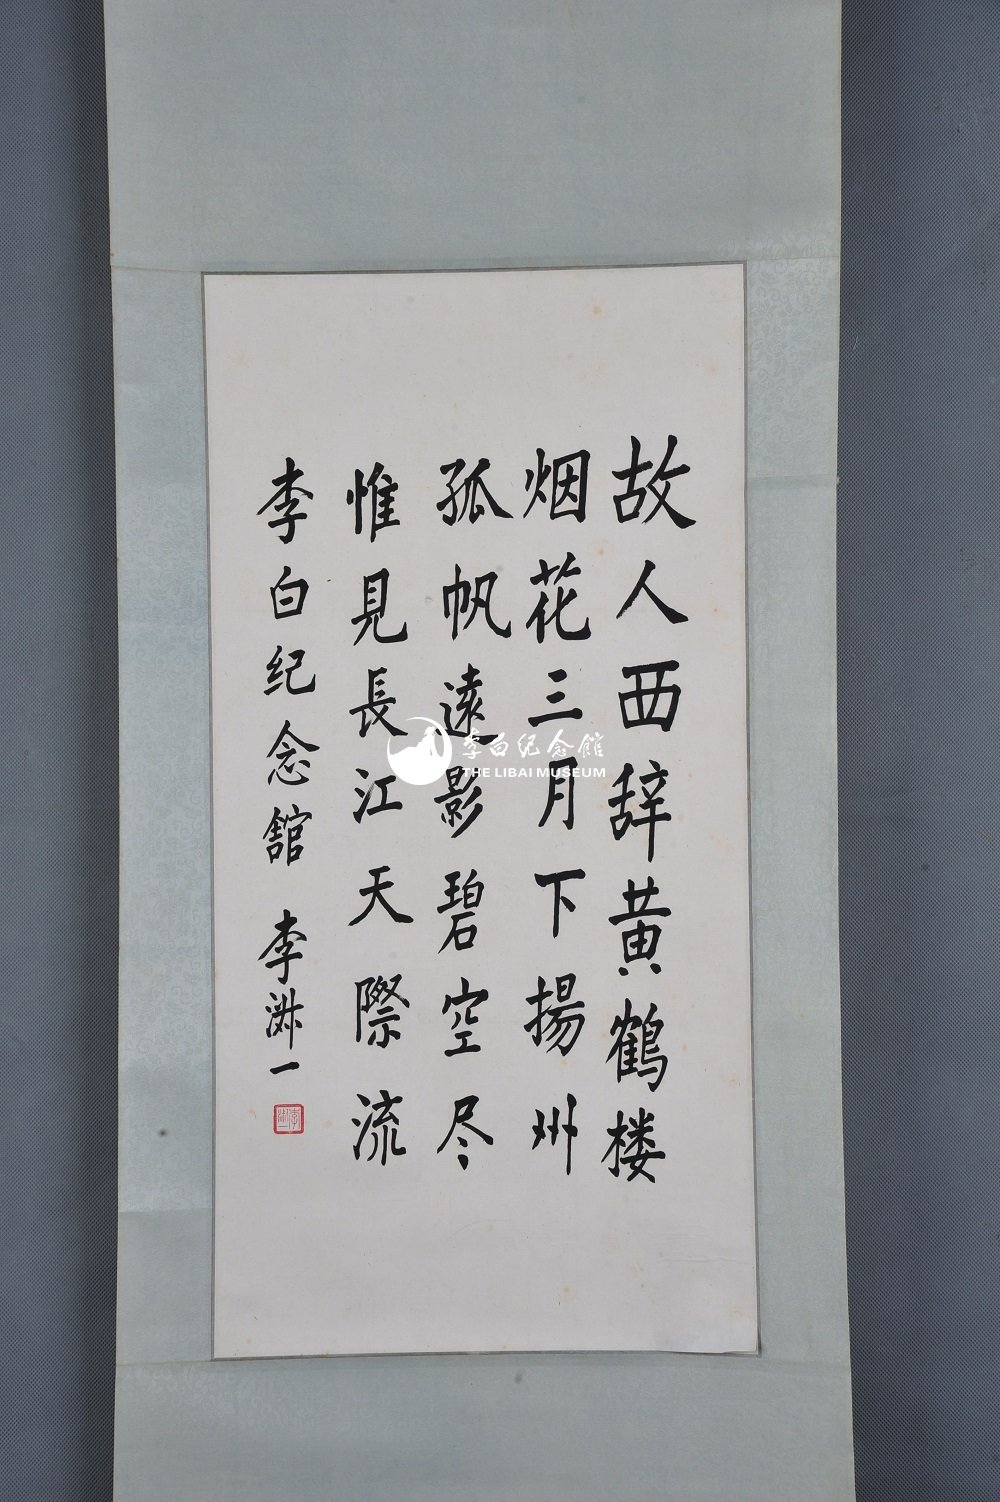 故人西辞黄鹤楼
烟花三月下揚州
孤帆遠影碧空尽
惟見長江天際流
李白纪念舘 李淑一
李白纪念館
THE LIBAI MUSEUM